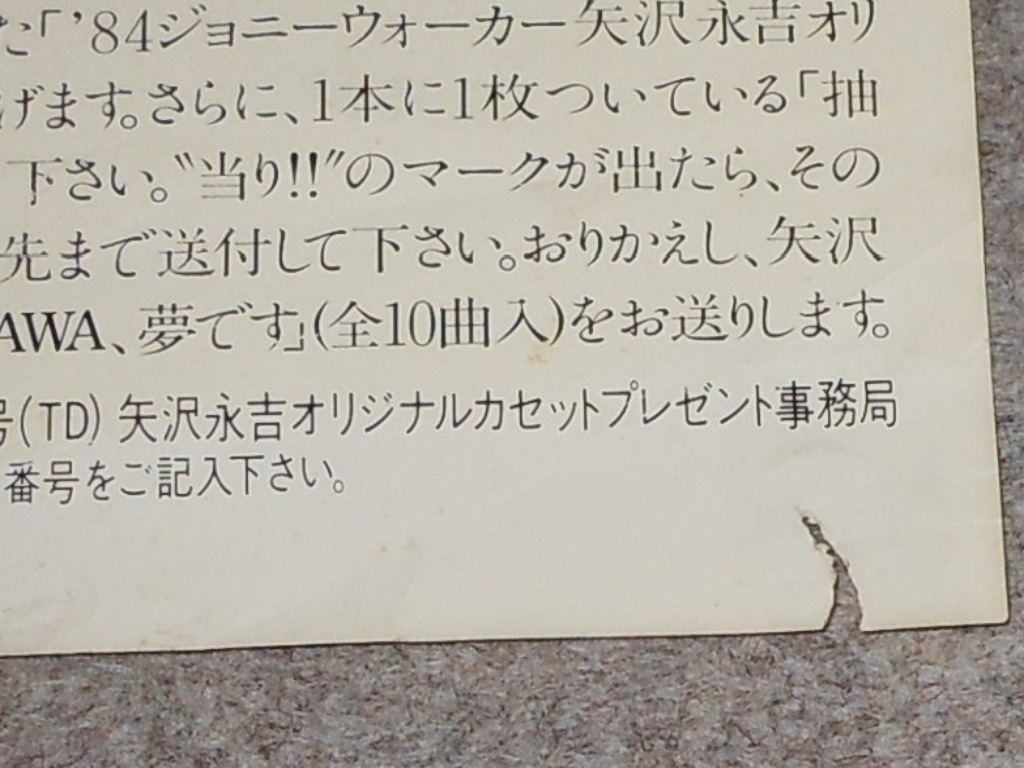 た「'84ジョニーウォーカー矢沢永吉オリ
げます。さらに、1本に1枚ついている「抽
下さい。〝当り!!〟のマークが出たら、その
先まで送付して下さい。おりかえし、矢沢
AWA、夢です」(全10曲入)をお送りします。
号(TD) 矢沢永吉オリジナルカセットプレゼント事務局
番号をご記入下さい。